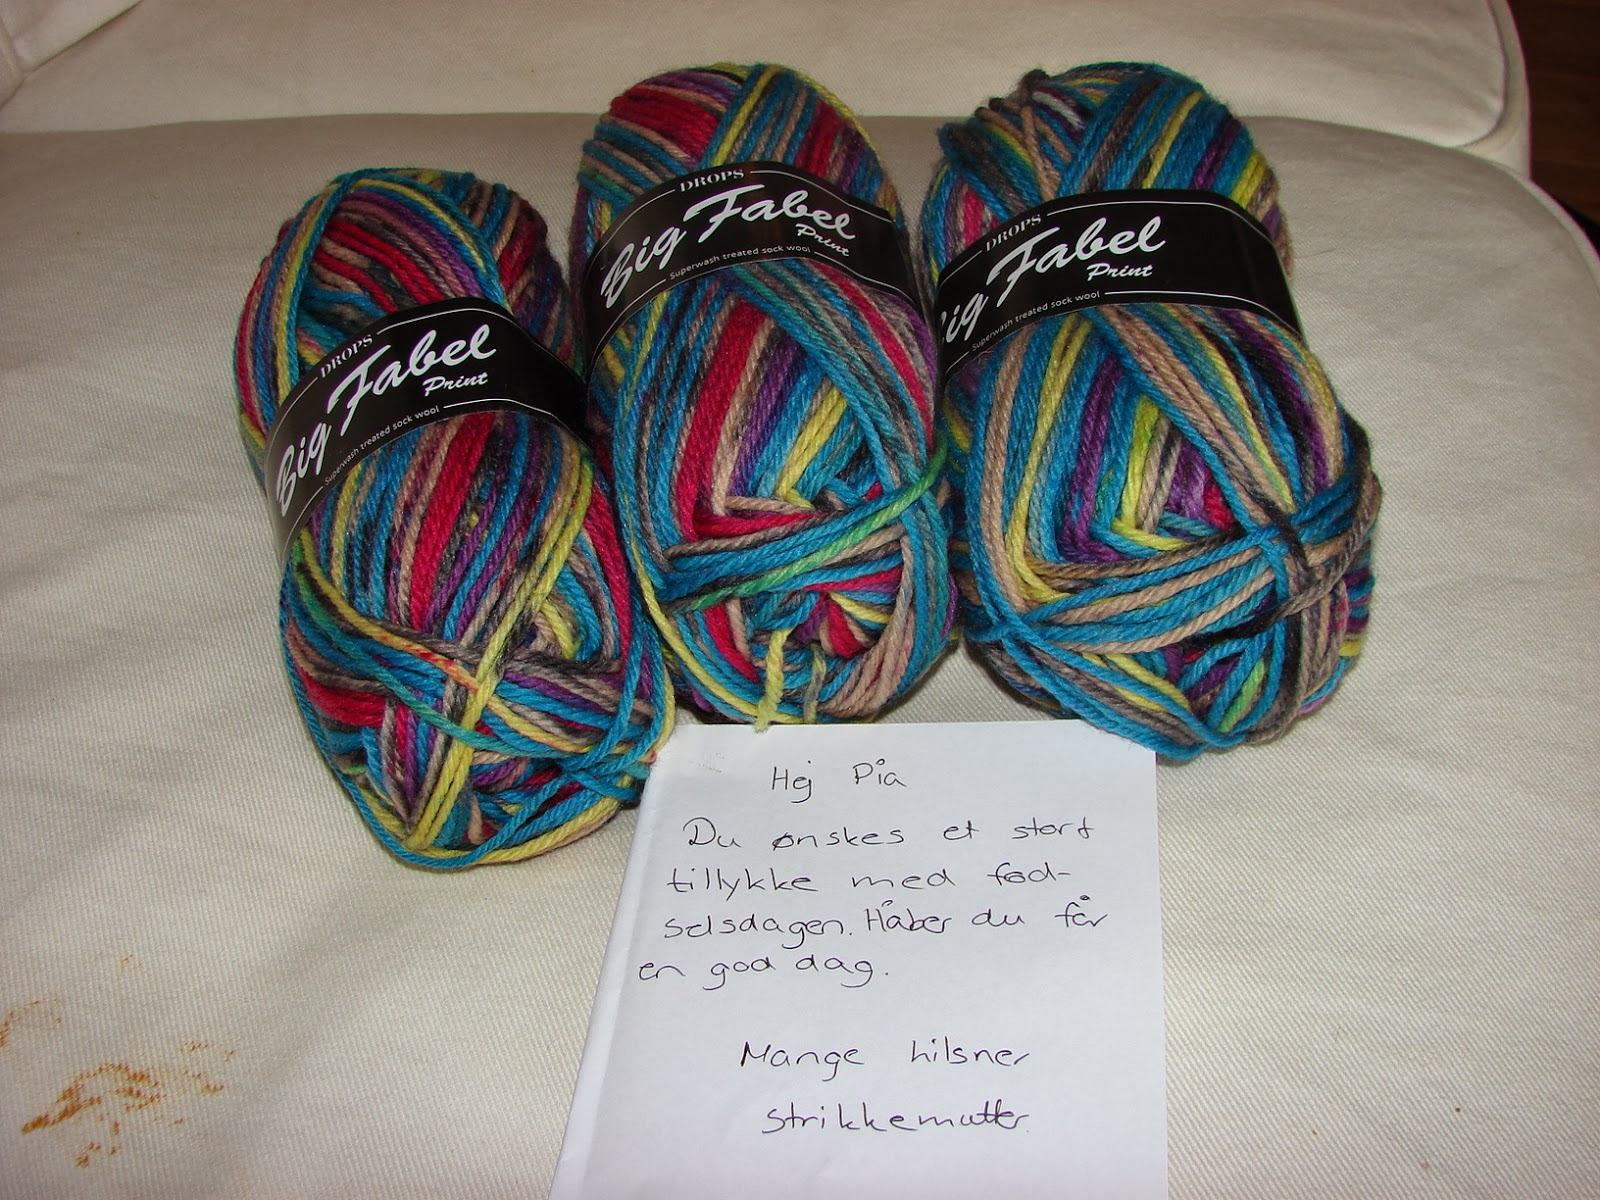 DROPS
Big Fabel
Print
Superwash treated sock wool
DROPS
Big Fabel
Print
Superwash treated sock wool
DROPS
ig Fabel
Print
Superwash treated sock wool
Hej Pia
Du ønskes et stort
tillykke med fød-
selsdagen. Håber du får
en god dag.
Mange hilsner
Strikkemutter